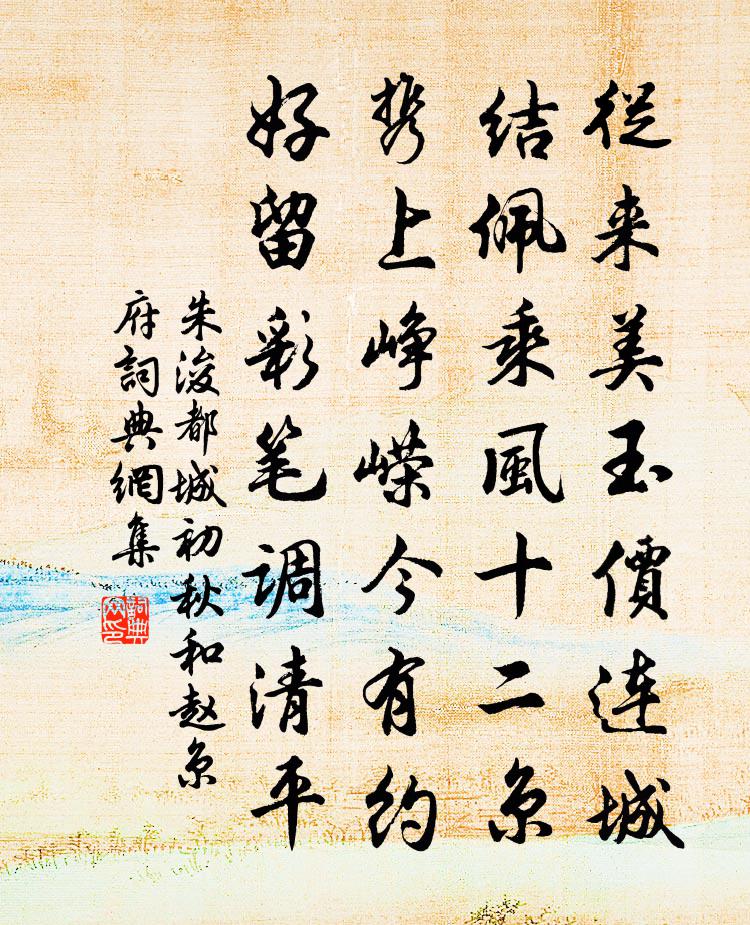 從来美玉價连城
结佩乘風十二京
携上峥嵘今有约
好留彩笔调清平
朱浚都城初秋和赵京
府詞典網集
詞典网印